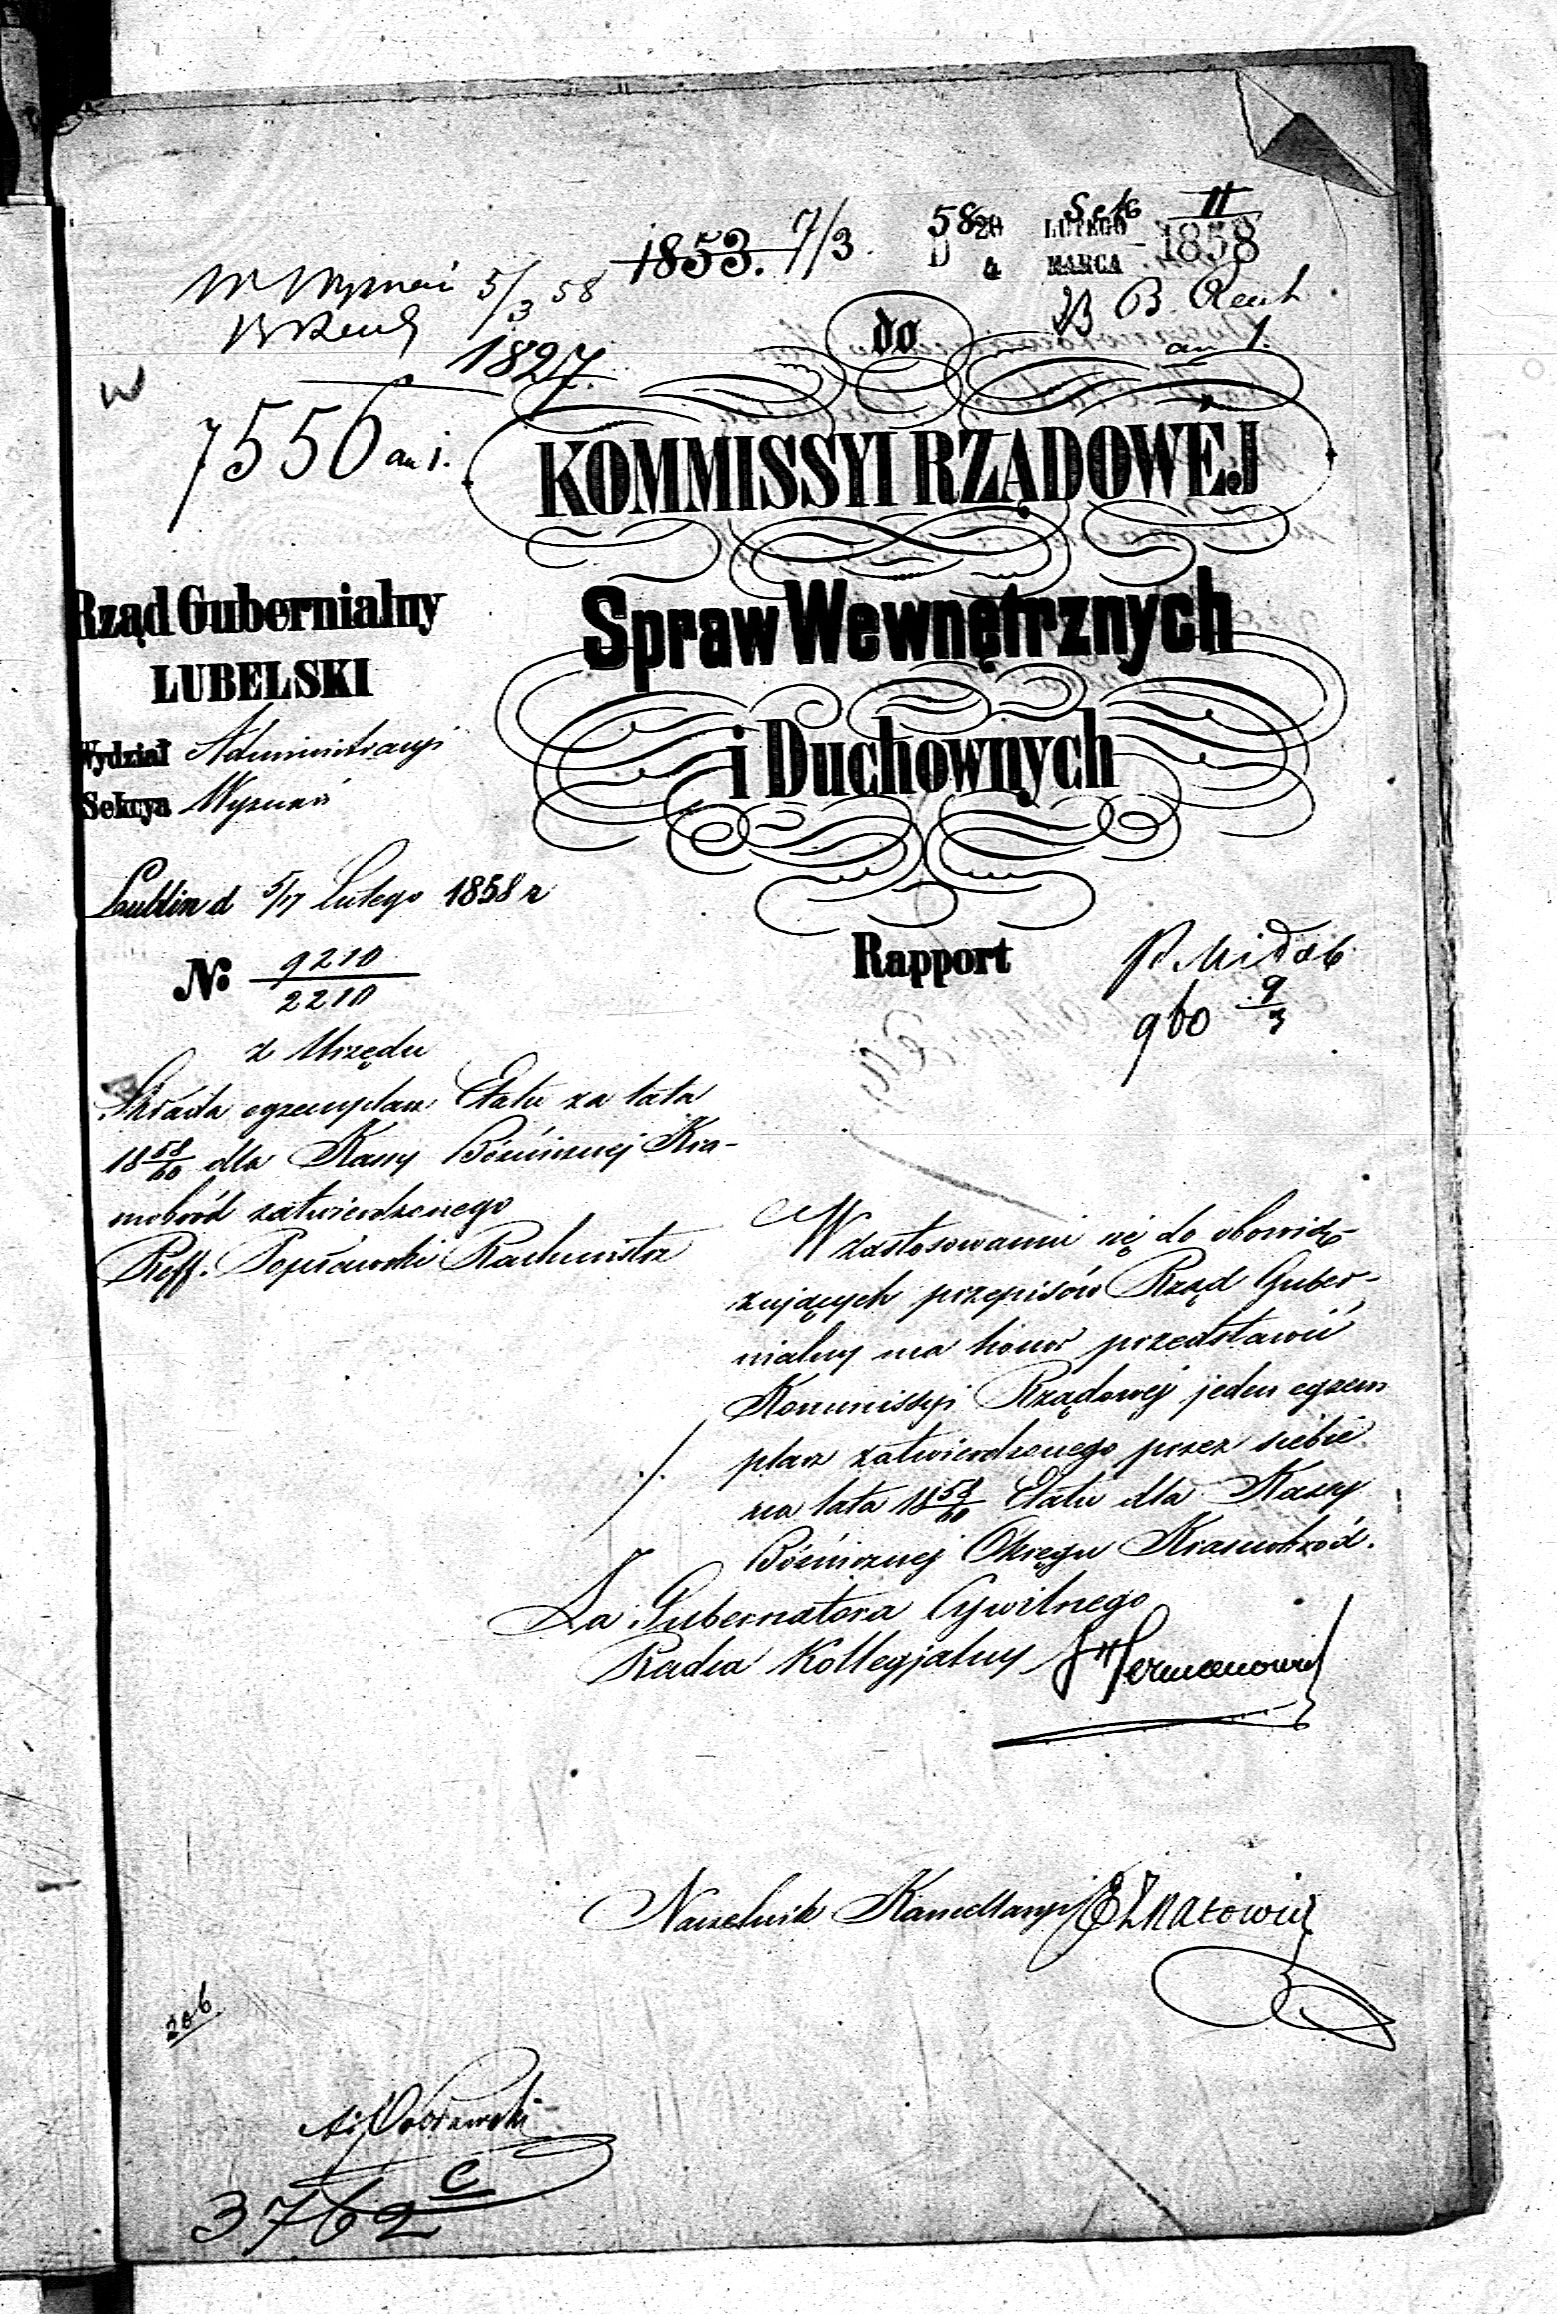 1853. 7/3.
58 Sek II
D 20 LUTEGO
4 MARCA 1858
W Wyznań 5/3 58
B. Reut
an 1.
1827.
w
7556 an 1.
do
KOMMISSYI RZĄDOWEJ
Spraw Wewnętrznych
i Duchownych
Rząd Gubernialny
LUBELSKI
Wydział Administracyi
Sekcya Wyznań
Lublin d 5/17 Lutego 1858 r
No 9210/2210
z Urzędu
Rapport
960 9/3
Składa egzemplarz Etatu za lata
18 58/60 dla Kassy Bóżnicznej Kra-
snobród zatwierdzonego
Reff. Popławski Rachmistrz
W zastosowaniu się do obowią-
zujących przepisów Rząd Guber-
nialny ma honor przedstawić
Kommissyi Rządowej jeden egzem
plarz zatwierdzonego przez siebie
na lata 18 58/60 Etatu dla Kassy
Bóżnicznej Okręgu Krasnobród.
Za Gubernatora Cywilnego
Radca Kollegjalny
Naczelnik Kancellaryi
206
3762 C